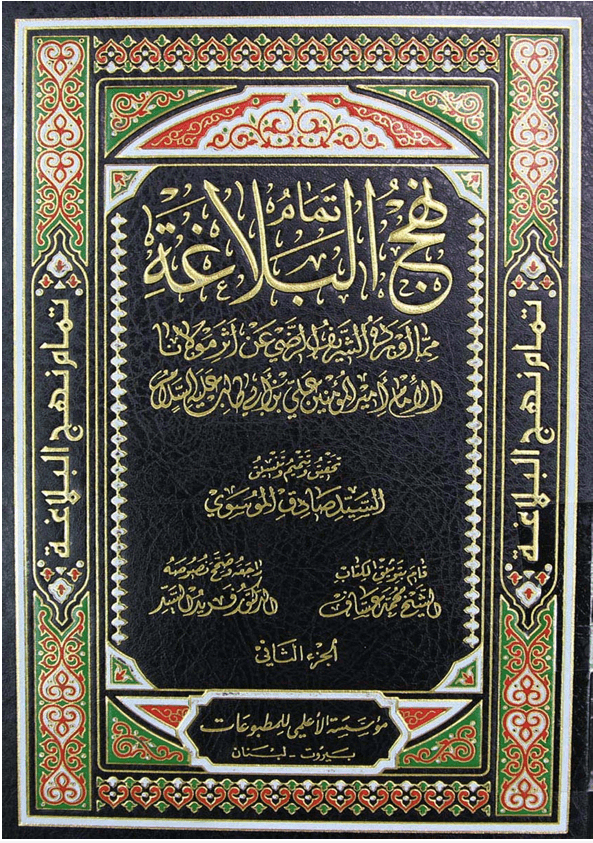 تمام
نهج البلاغة
مما أورده الشريف الرضي عن أثر مولانا
الإمام أمير المؤمنين علي بن أبي طالب عليه السلام
تحقيق وتتميم وتنسيق
السيد صادق الموسوي
قام بتوثيق الكتاب
الشيخ محمد عساف
راجعه وصحح نصوصه
الدكتور فريد السيد
الجزء الثاني
مؤسسة الأعلمي للمطبوعات
بيروت - لبنان
تمام نهج البلاغة
تمام نهج البلاغة